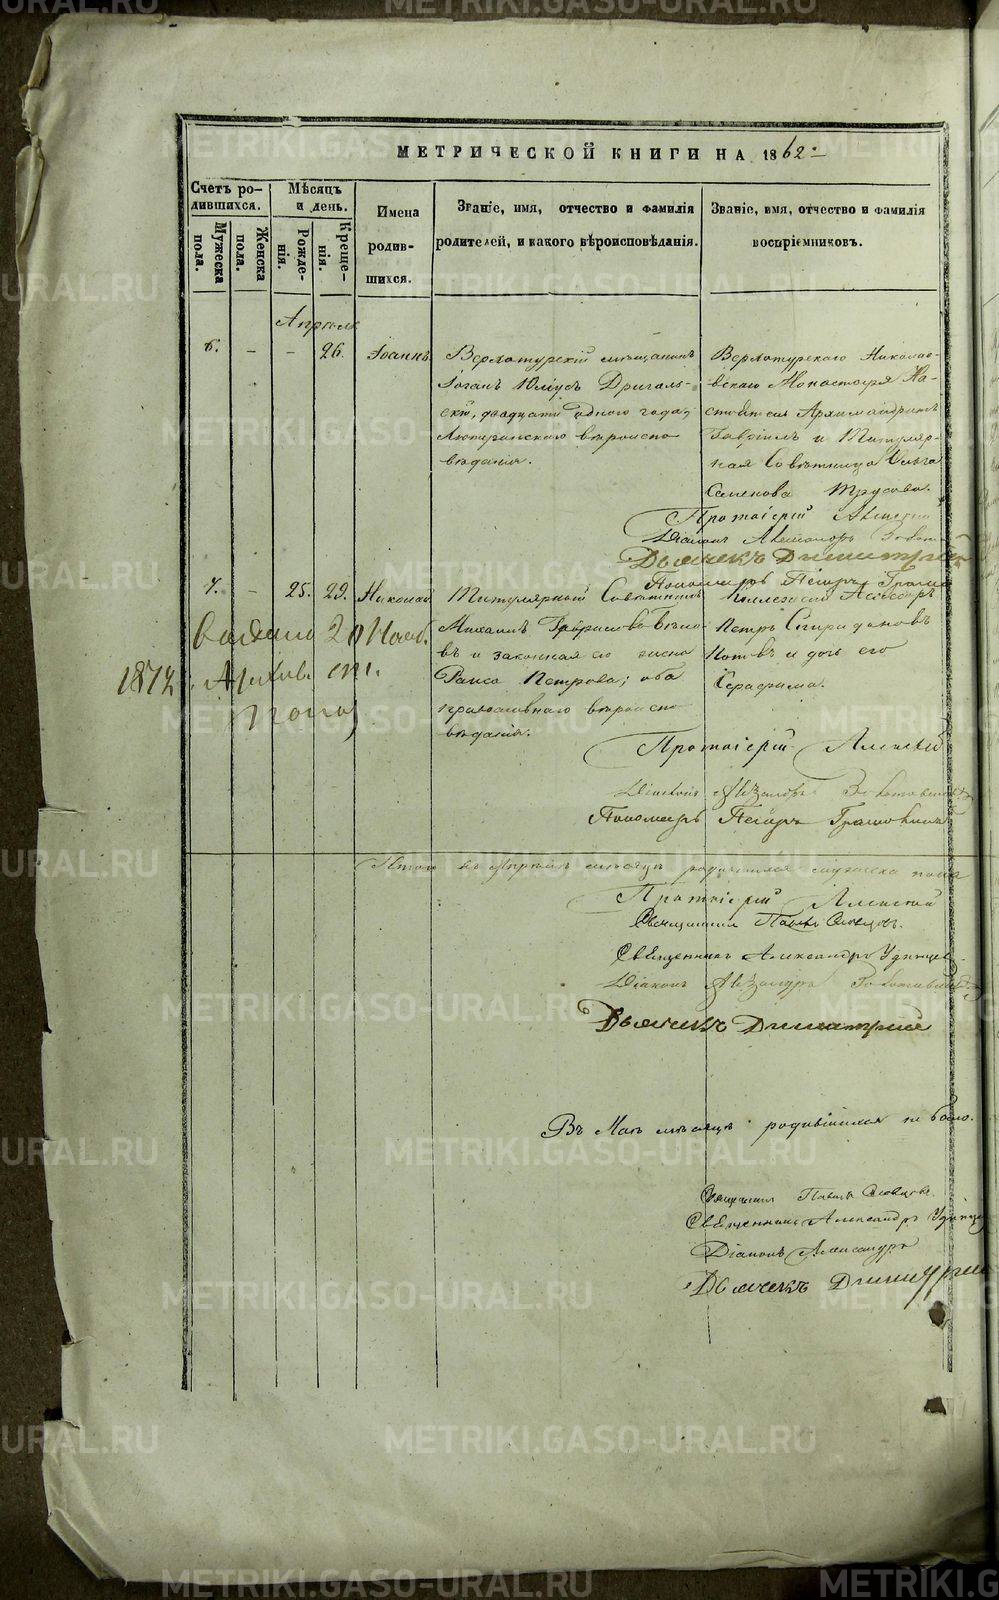 МЕТРИЧЕСКОЙ КНИГИ НА 1862.
Счетъ ро-
дившихся.
Мужеска
пола.
Женска
пола.
Мѣсяцъ
и день.
Рожде-
нія.
Креще-
нія.
Имена
родив-
шихся.
Званіе, имя, отчество и фамилія
родителей, и какого вѣроисповѣданія.
Званіе, имя, отчество и фамилія
воспріемниковъ.
Апрѣль
6. - - 26. Іоаннъ
Верхотурскій мѣщанинъ
Іоган Юліусъ Дригаль-
скій, двадцати одного года,
Лютеранскаго вѣроиспо
вѣданія.
Верхотурскаго Николаев-
скаго Монастыря На-
стоятель Архимандритъ
Гавріилъ и Титуляр-
ная Совѣтница Ольга
Семенова Трусова.
Протоіерей Алексей
Діаконъ Александръ
Дьячекъ Димитрий
Пономарь Петръ
7. - 25. 29. Николай
Титулярный Совѣтникъ
Михаилъ Гавриловъ
въ и законная его жена
Раиса Петрова; оба
православнаго вѣроиспо
вѣданія.
Коллежский Асессоръ
Петръ Спиридоновъ
Котовъ и дочь его
Серафима.
20 Нояб.
1872
Протоіерей Алексей
Діаконъ Александръ
Пономарь Петръ
Итого въ Апрѣлѣ мѣсяцѣ родившихся мужеска пола
Протоіерей Алексей
Священникъ Павелъ Словцовъ.
Священникъ Александръ Удинцев
Діаконъ Александръ
Дьячекъ Димитрий
Въ Маѣ мѣсяцѣ родившихся не было.
Священникъ Павелъ Словцовъ.
Священникъ Александръ Удинцев
Діаконъ Александръ
Дьячекъ Димитрий
METRIKI.GASO-URAL.RU